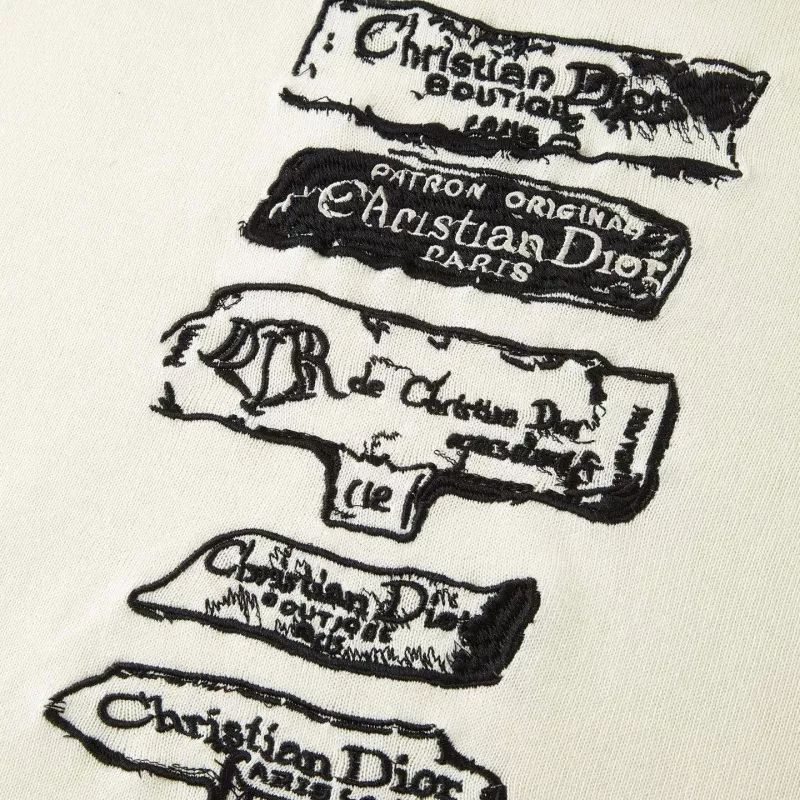 Christian Dior
BOUTIQUE
PATRON ORIGINAL
Christian Dior
PARIS
DIOR de Christian Dior
Christian Dior
BOUTIQUE
Christian Dior